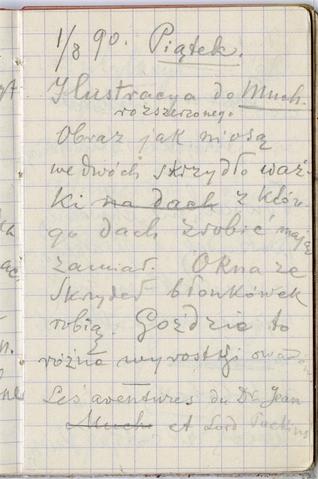 1/8 90. Piątek.
Ilustracya do Much.
rozszerzonego
Obraz jak niosą
we dwóch skrzydło waż-
ki na dach z któr-
ego dach zrobić mają
zamiar. Okna ze
skrzydeł błonkówek
robią. Goździe to
różne wyrostki owadów
Les aventures du Dr. Jean
Much et Lord